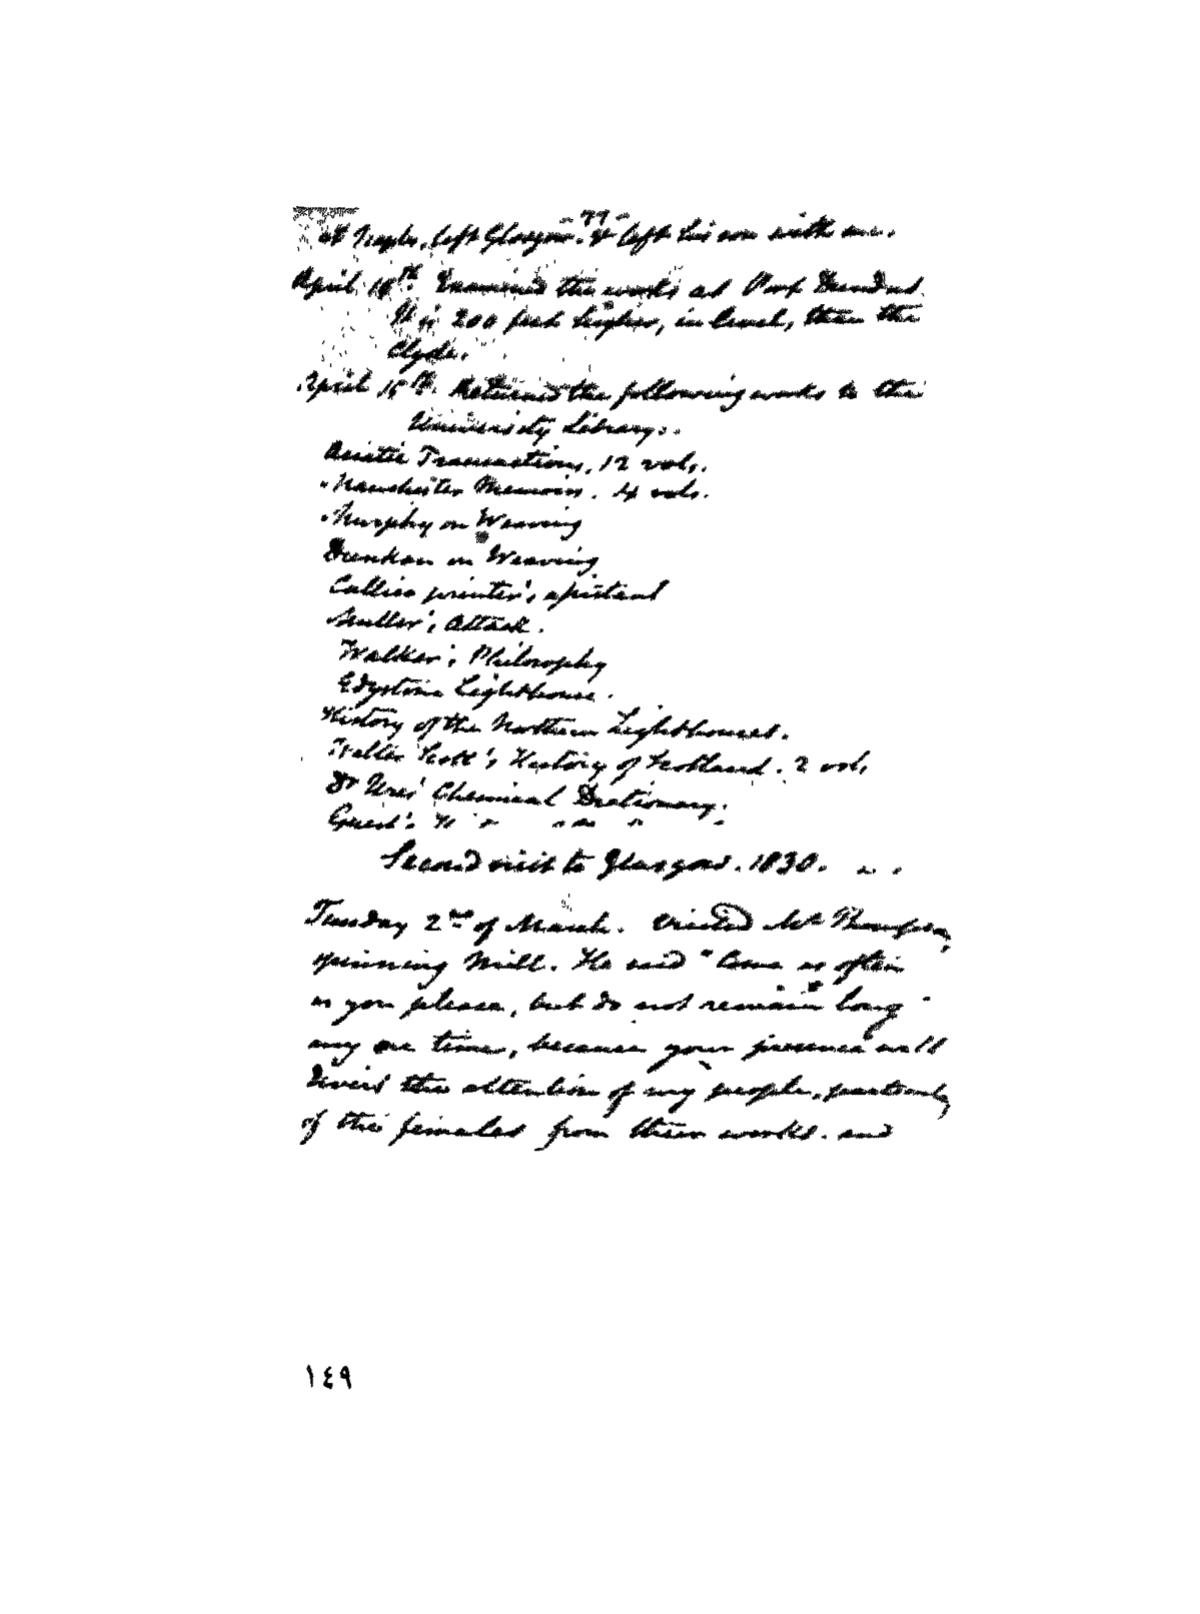 - 77 -
at Naples, left Glasgow. & left his son with me.
April 14th. Examined the works at Port Dundas.
It is 200 feet higher, in level, than the
Clyde.
April 15th. Returned the following works to the
University Library:.
Asiatic Transactions, 12 vols.
Manchester Memoirs. 4 vols.
Murphy on Weaving
Duncan on Weaving
Callico printer's assistant
Muller's Attack.
Walker's Philosophy
Edystone Lighthouse.
History of the Northern Lighthouses.
Walter Scott's History of Scotland. 2 vols,
Dr Ures' Chemical Dictionary.
Guest's
Second visit to Glasgow. 1830.
Tuesday 2nd of March. Visited Mr Thompson,
spinning Mill. He said "Come as often
as you please, but do not remain long
any one time, because your presence will
divert the attention of my people, particularly
of the females from their works. and
١٤٩